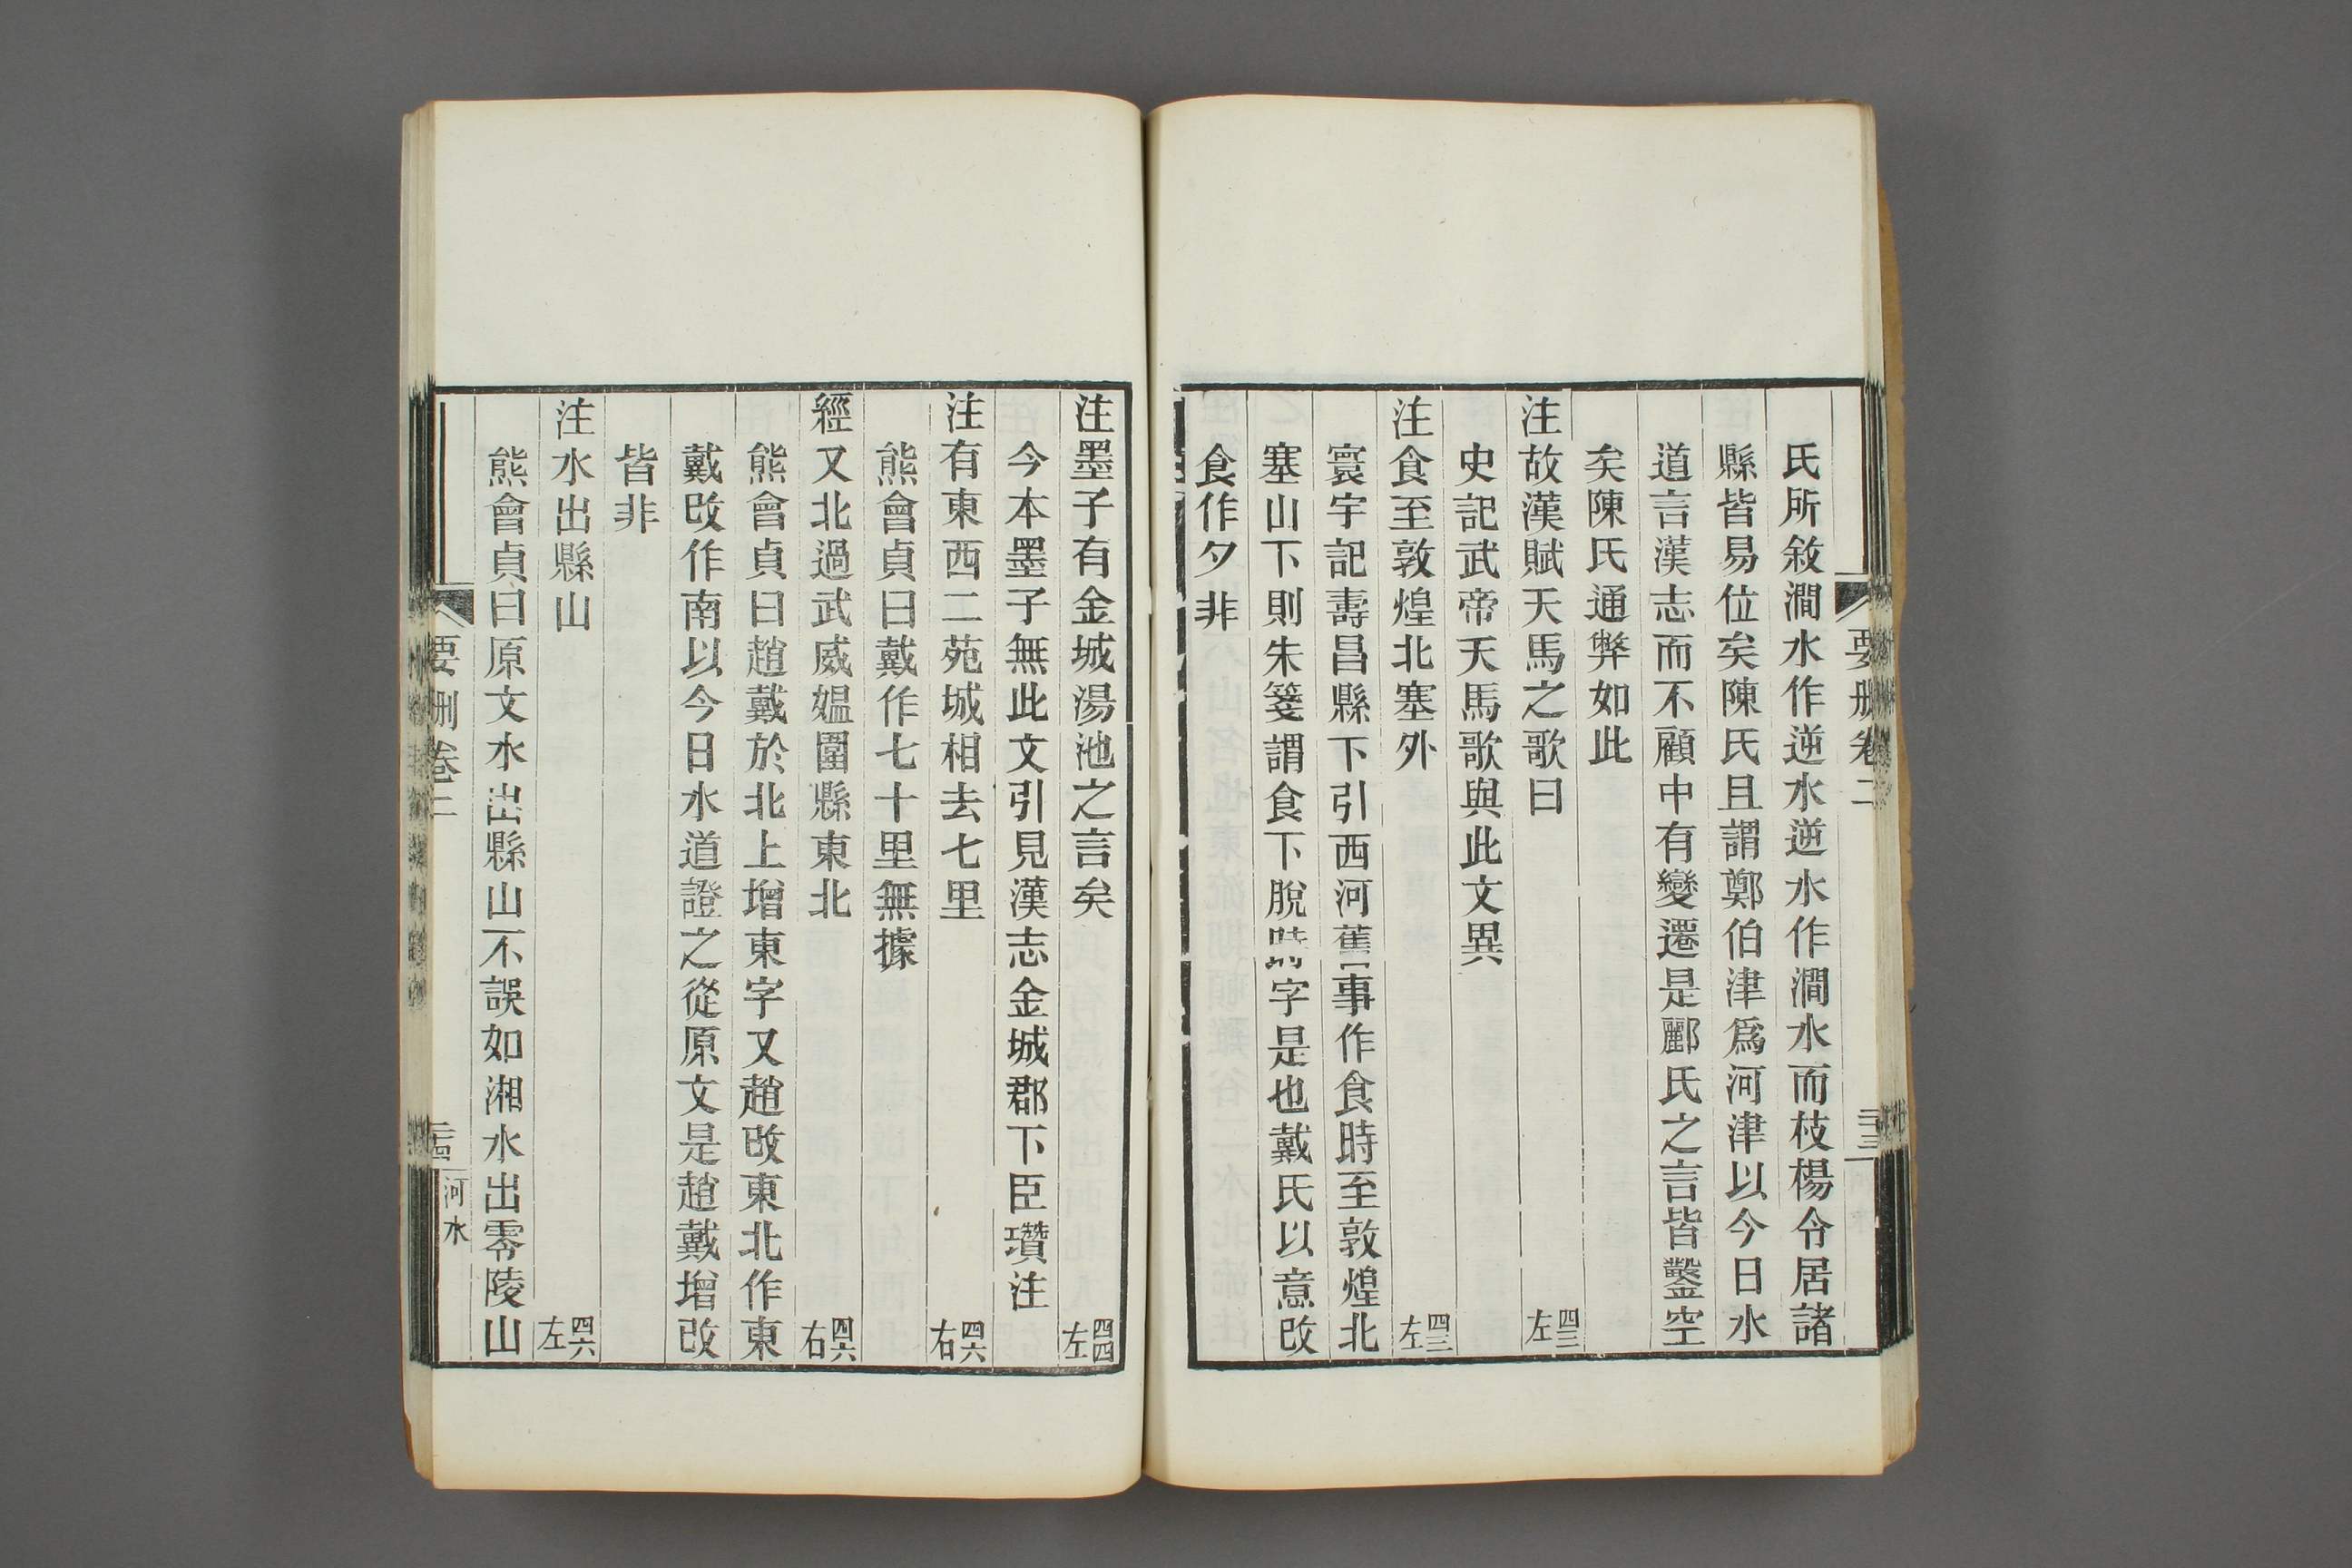 要刪卷二
氏所敘澗水作逆水逆水作澗水而枝楊令居諸
縣皆易位矣陳氏且謂鄭伯津爲河津以今日水
道言漢志而不顧中有變遷是酈氏之言皆鑿空
矣陳氏通弊如此
注故漢賦天馬之歌曰 四三左
史記武帝天馬歌與此文異
注食至敦煌北塞外 四三左
寰宇記壽昌縣下引西河舊事作食時至敦煌北
塞山下則朱箋謂食下脫時字是也戴氏以意改
食作夕非
注墨子有金城湯池之言矣 四四左
今本墨子無此文引見漢志金城郡下臣瓚注
注有東西二苑城相去七里 四六右
熊會貞曰戴作七十里無據
經又北過武威媼圍縣東北 四六右
熊會貞曰趙戴於北上增東字又趙改東北作東
戴改作南以今日水道證之從原文是趙戴增改
皆非
注水出縣山 四六左
熊會貞曰原文水出縣山不誤如湘水出零陵山
要刪卷二
河水